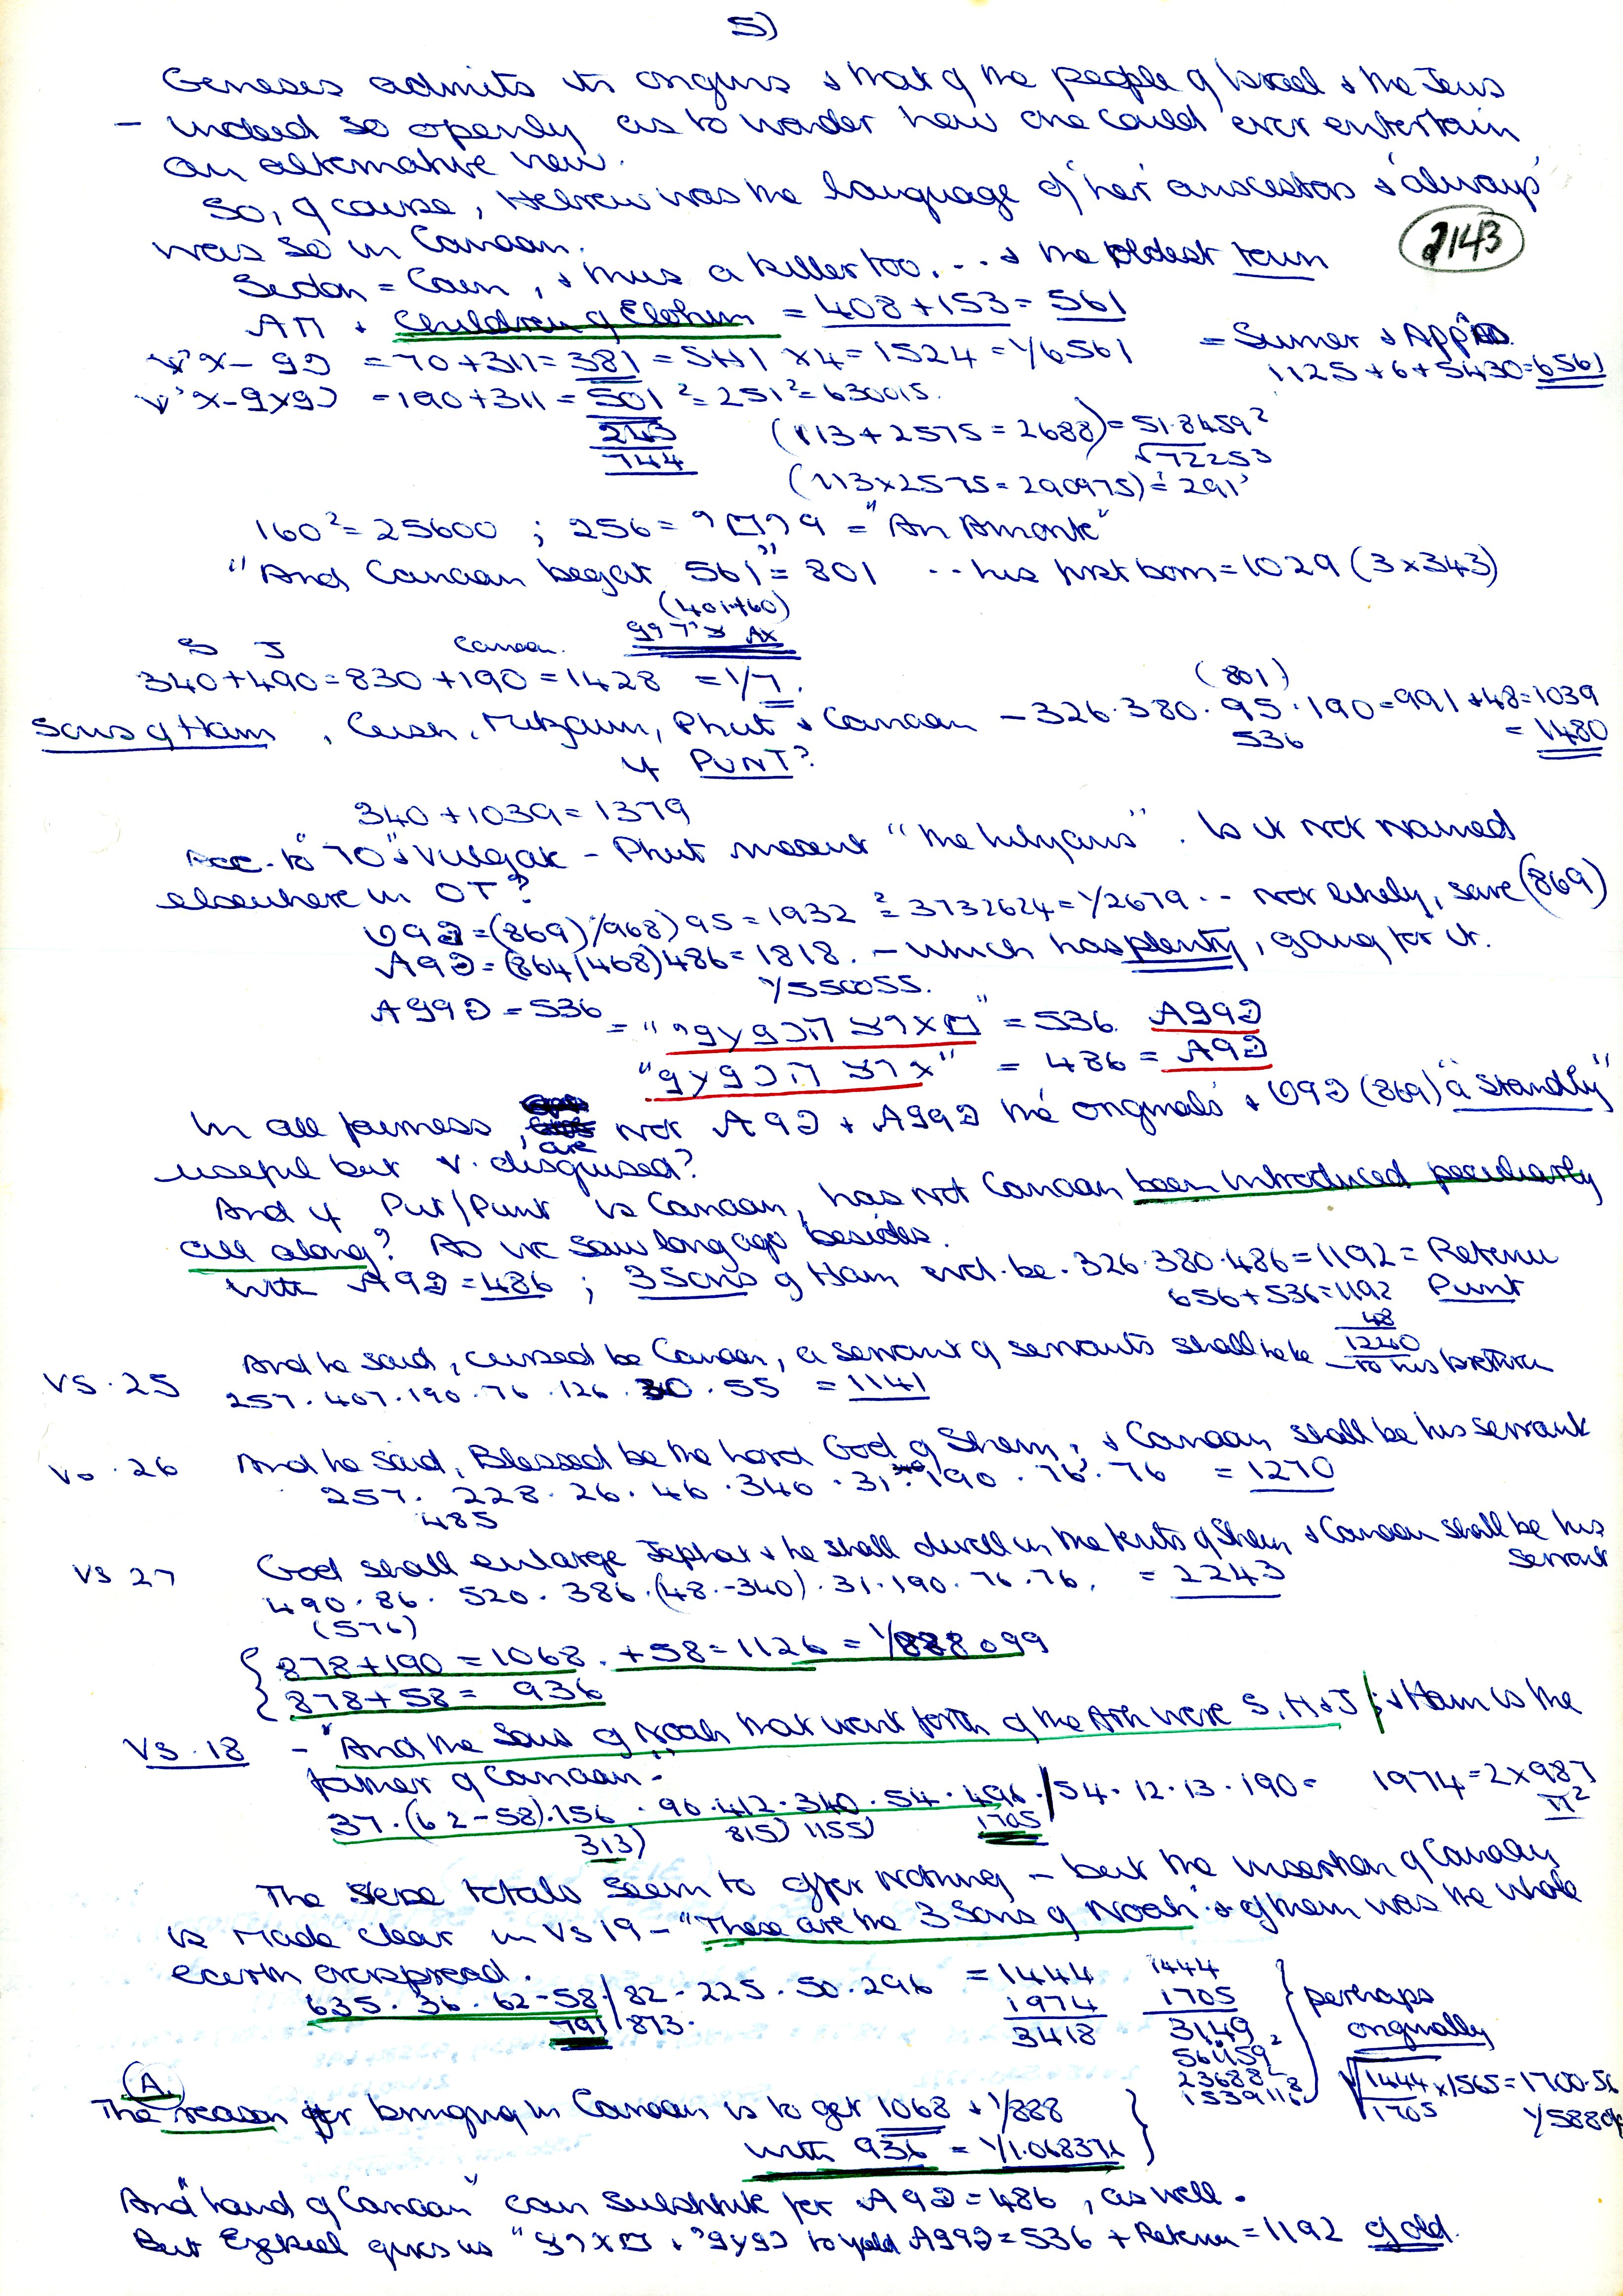 5)
Geneses admits its origins & that of the people of Israel & the Jews
- indeed so openly as to wonder how one could ever entertain
an alternative view.
So, of course, Hebrew was the language of 'her' ancestors & 'always'
was so in Canaan.
2143
Sidon = Cain, & thus a killer too... & the oldest town
& Children of Elohim = 408 + 153 = 561
= 70 + 311 = 381 = SHI x 4 = 1524 = 1/6561 = Sumer &
1125 + 6 + 5430 = 6561
= 190 + 311 = 501² = 251² = 630015.
243
744
(113 + 2575 = 2688) = 51.8459²
√72253
(113 x 2575 = 290975) = 291'
160² = 25600 ; 256 = = "An Amorite"
"And Canaan begat 561" = 801 .. his first born = 1029 (3 x 343)
(401+60)
S J Canaan.
340 + 490 = 830 + 190 = 1428 = 1/7.
(801)
Sons of Ham, Cush, Mitzraim, Phut & Canaan - 326.380.95.190 = 991 + 48 = 1039
536 = 1480
if PUNT?
340 + 1039 = 1379
Acc. to "70" & Vulgate - Phut meant "the Libyans". Is it not named
elsewhere in OT?
= (869)/968) 95 = 1932² = 3732624 = 1/2679 .. not likely, save (869)
= (864/468) 486 = 1818. - which has plenty, going for it.
1/550055.
= 536 = " " = 536.
" " = 486 =
In all fairness, are not & the originals & (869) "a standby"
useful but v. disguised?
And if Put/Punt is Canaan, has not Canaan been introduced peculiarly
all along? As we saw long ago besides.
with = 486 ; 3 Sons of Ham wd. be . 326.380.486 = 1192 = Retenu
656 + 536 = 1192 Punt
48
1240
VS. 25 And he said, cursed be Canaan, a servant of servants shall he be to his brethren
257.407.190.76.126.30.55 = 1141
Vs. 26 And he said, Blessed be the Lord God of Shem, & Canaan shall be his servant
257. 228. 26. 46. 340. 31. 190. 76. 76 = 1270
485
VS 27 God shall enlarge Japhet & he shall dwell in the tents of Shem & Canaan shall be his
servant
490. 86. 520. 386. (48.-340). 31. 190. 76. 76. = 2243
(576)
878 + 190 = 1068. + 58 = 1126 = 1/888099
878 + 58 = 936
VS. 18 - "And the Sons of Noah that went forth of the Ark were S, H & J; & Ham is the
father of Canaan -
37. (62-58). 156. 90. 412. 340. 54. 496. / 54. 12. 13. 190 = 1974 = 2 x 987
π²
313) 815) 1155) 1705
The totals seem to offer nothing - but the insertion of Canaan
is made clear in VS 19 - "These are the 3 Sons of Noah & of them was the whole
earth overspread.
635. 36. 62-58. / 82. 225. 50. 296 = 1444
791 / 873.
1974
3418
1444
1705
3149
56.1159²
23688
1539116
perhaps
originally
√1444/1705 x 1565 = 1700.56
(A.)
The reason for bringing in Canaan is to get 1068 & 1/888
with 936 = 1/1.068376
And "land of Canaan" can substitute for = 486, as well.
But Ezekiel gives us " & to yield = 536 + Retenu = 1192 of old.